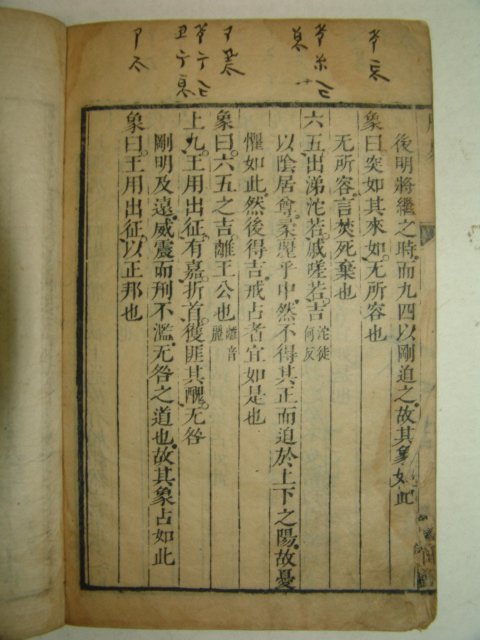 後明將繼之時而九四以剛迫之故其象如此
象曰突如其來如无所容也
无所容言焚死棄也
六五出涕沱若戚嗟若吉沱徒何反
以陰居尊柔麗乎中然不得其正而迫於上下之陽故憂
懼如此然後得吉戒占者宜如是也
象曰六五之吉離王公也離音麗
上九王用出征有嘉折首獲匪其醜无咎
剛明及遠威震而刑不濫无咎之道也故其象占如此
象曰王用出征以正邦也